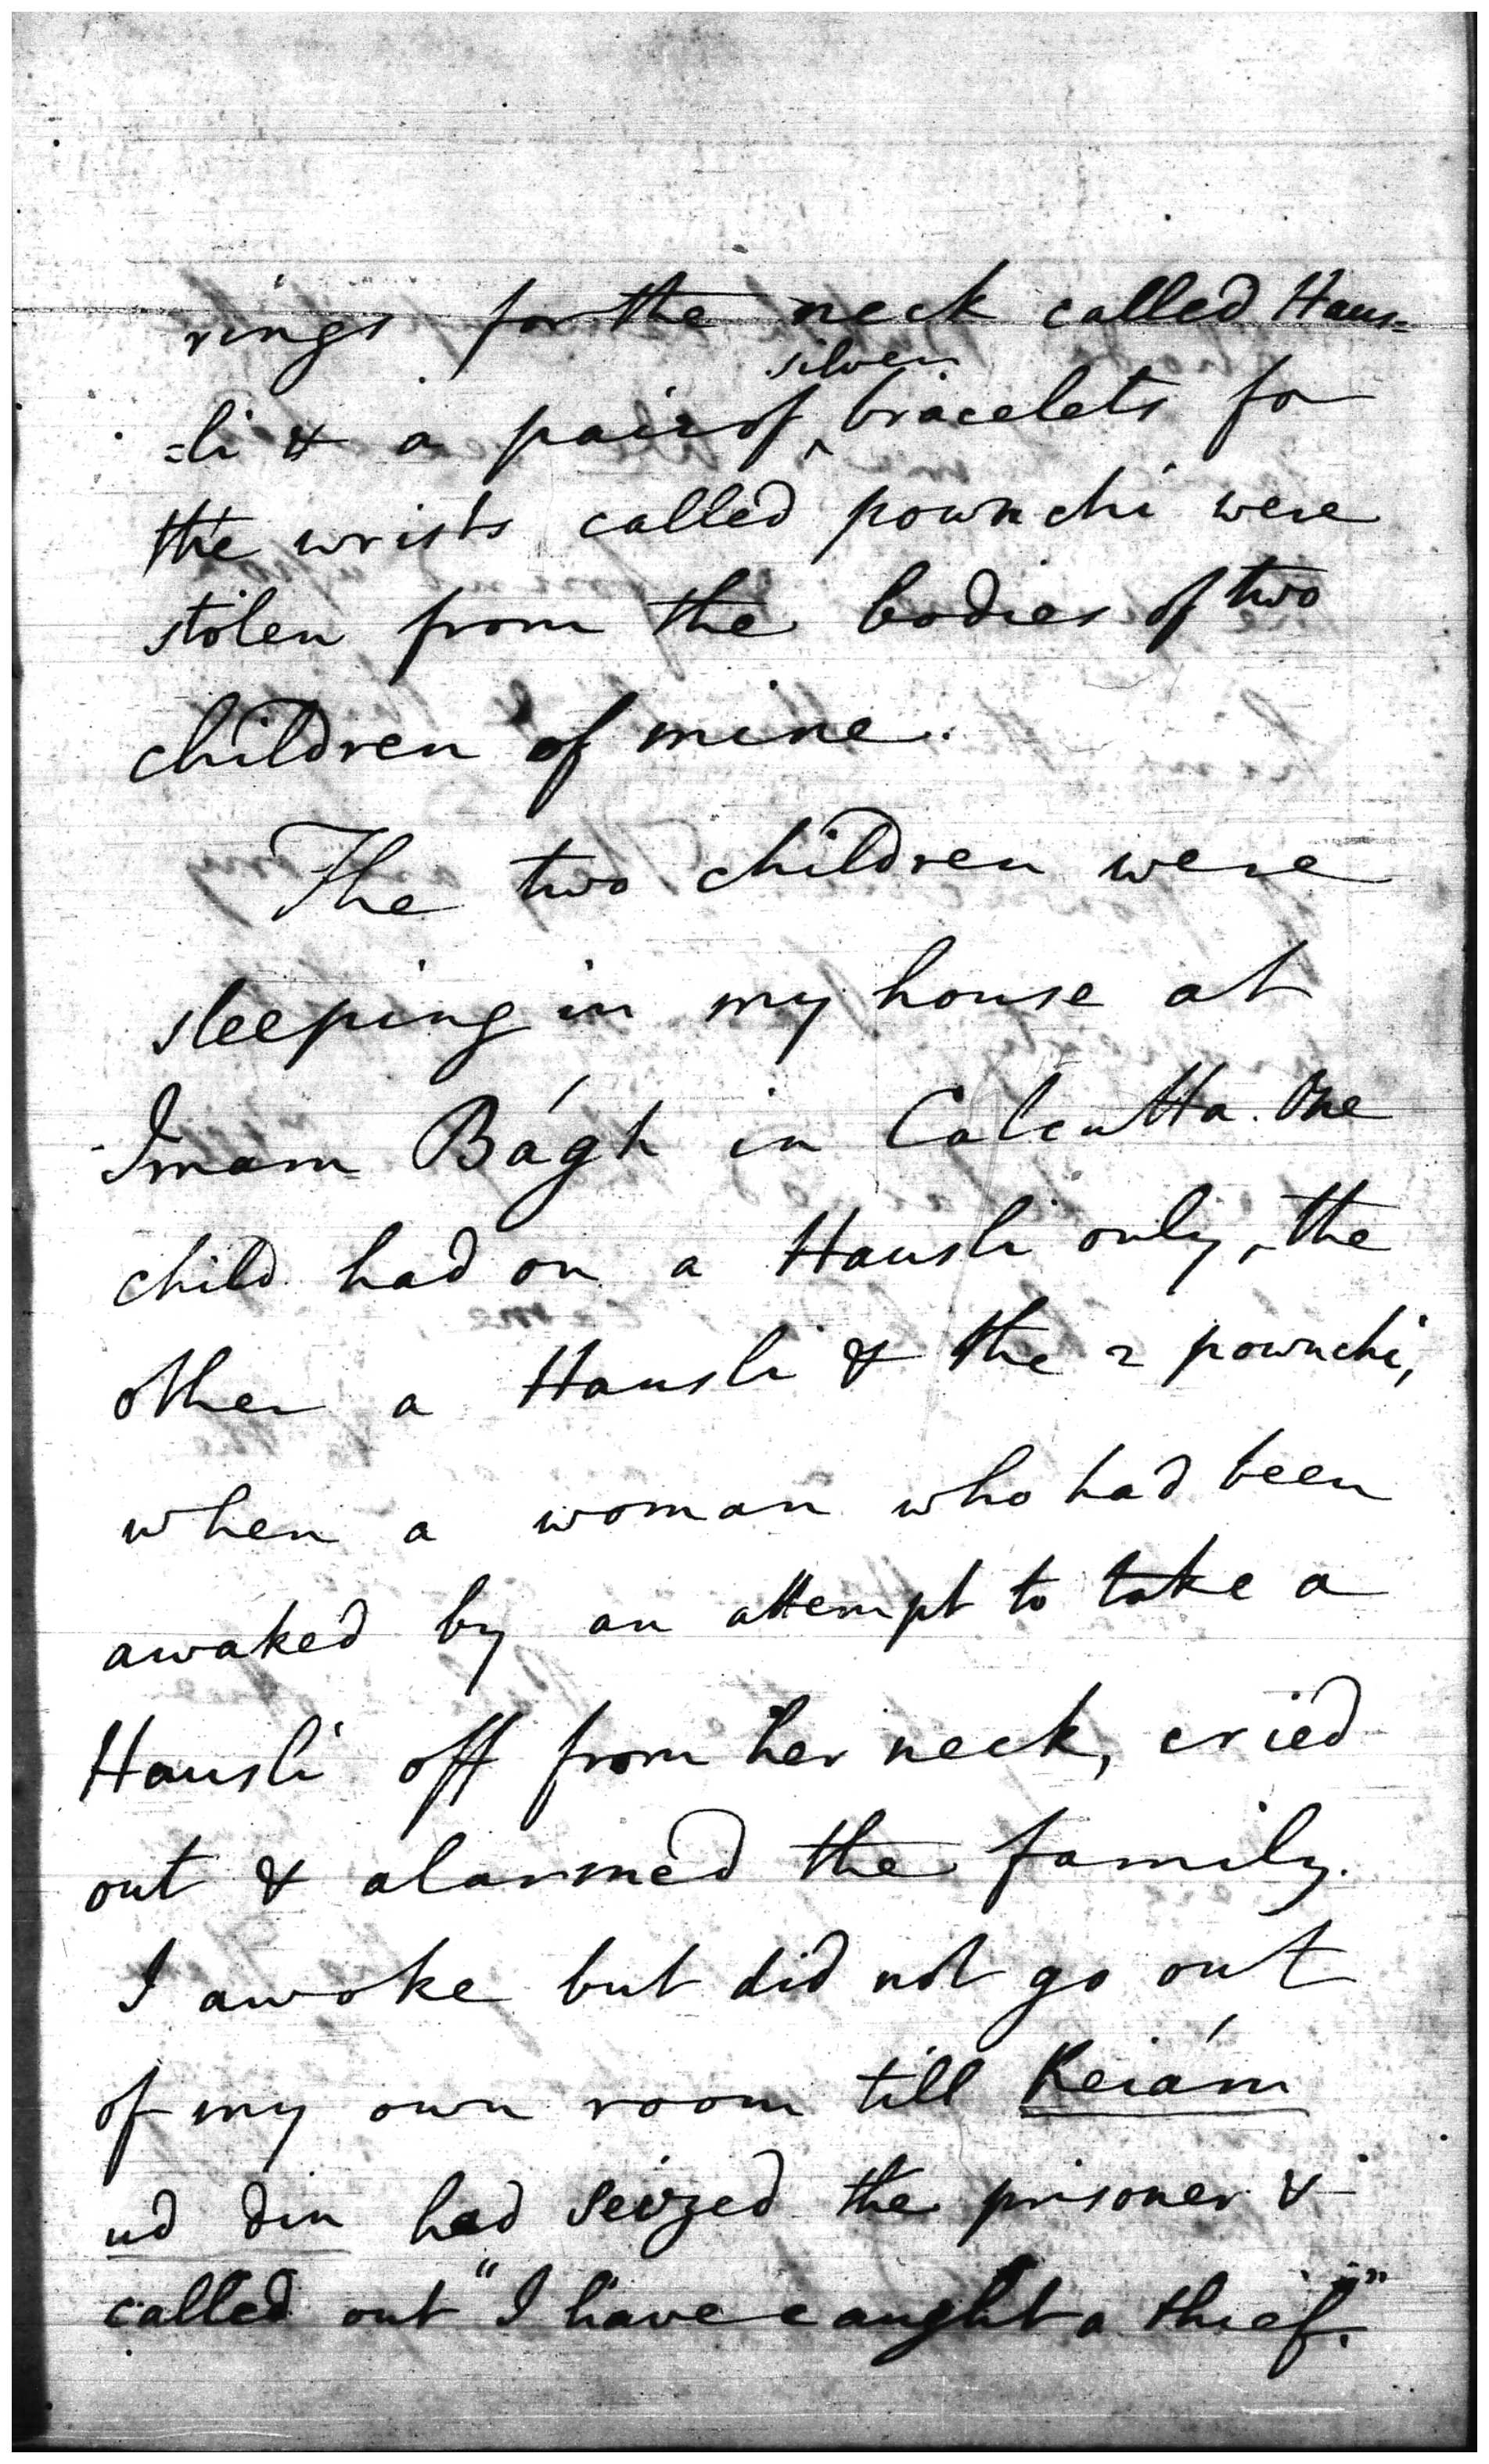 rings for the neck called Haus=
=li & a pair of ^silver bracelets for
the wrists called pownchi were
stolen from the bodies of two
children of mine.
The two children were
sleeping in my house at
Imam Bágh in Calcutta. One
child had on a Hausli only, the
other a Hausli & the 2 pownchi,
when a woman who had been
awaked by an attempt to take a
Hausli off from her neck, cried
out & alarmed the family.
I awoke but did not go out
of my own room till Keiám
ud din had seized the prisoner &
called out "I have caught a thief."